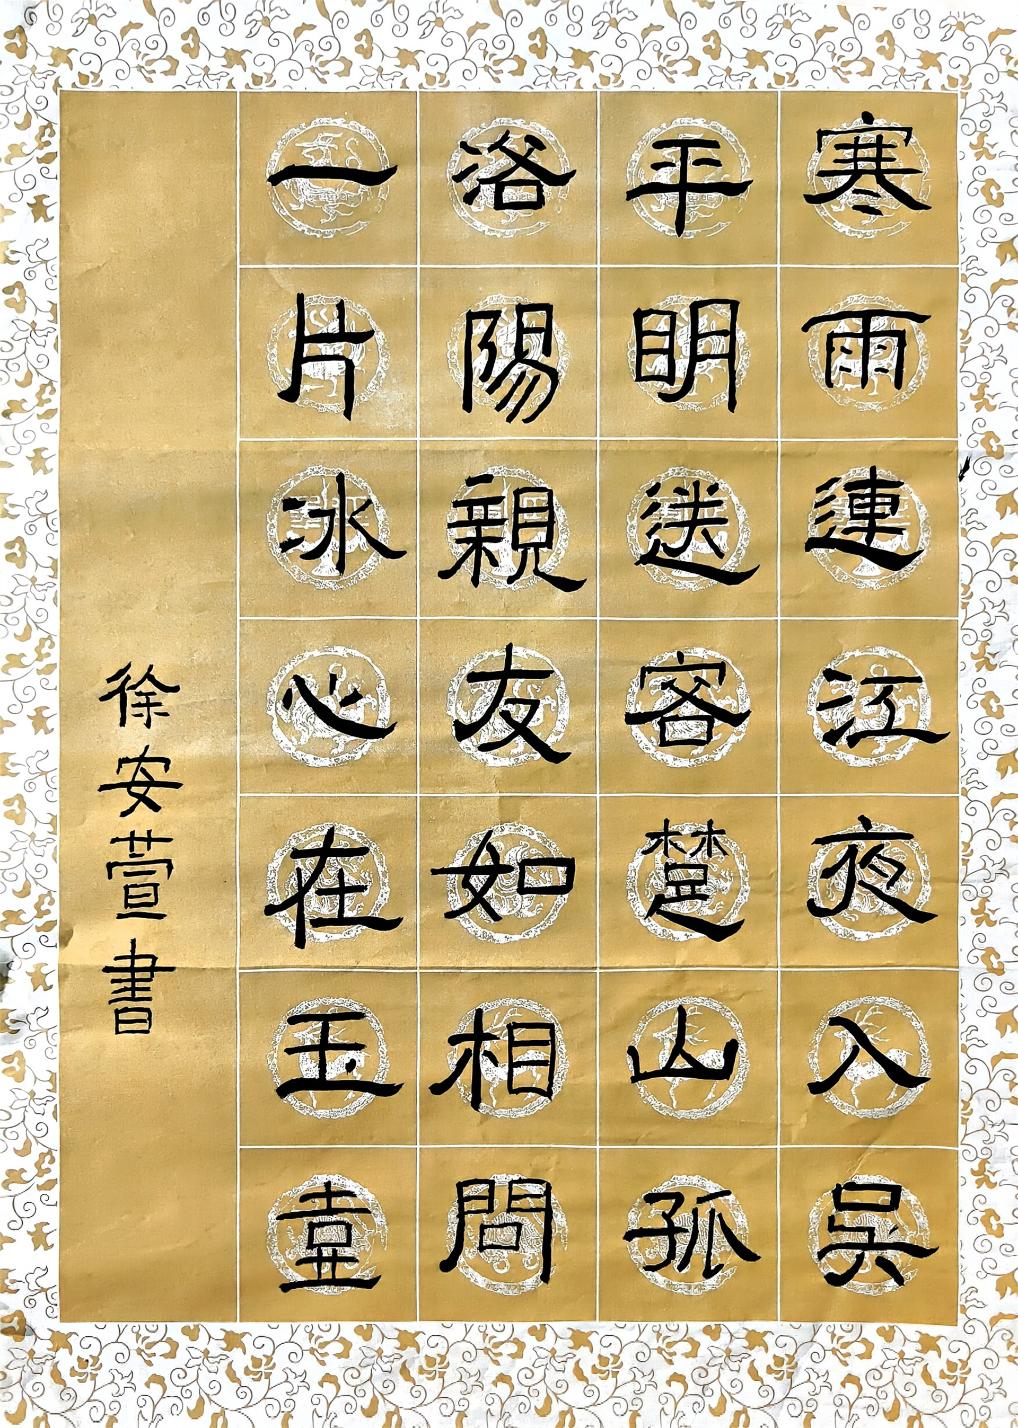 寒雨連江夜入吳
平明送客楚山孤
洛陽親友如相問
一片冰心在玉壺
徐安萱書